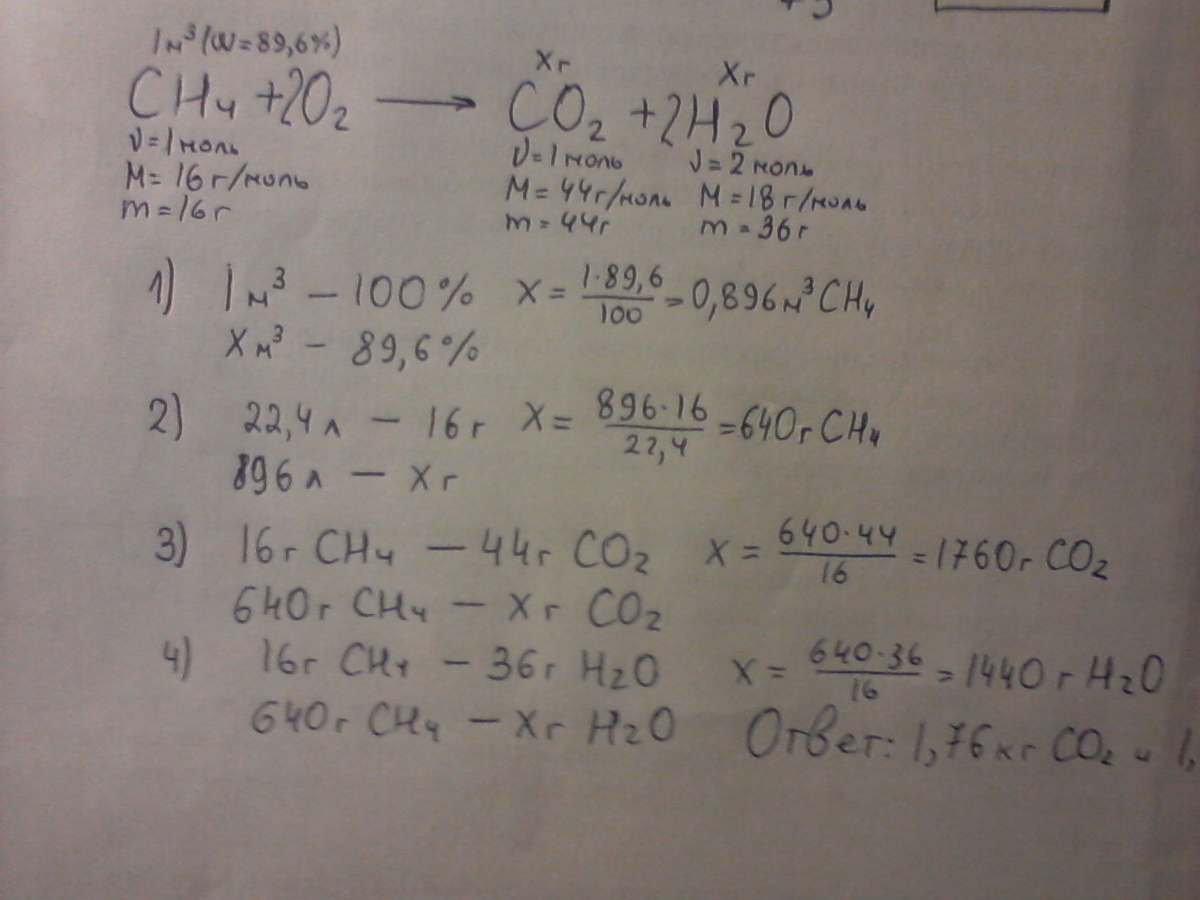 1 м³ (W=89,6%)
xг xг
CH₄ + 2O₂ → CO₂ + 2H₂O
ν=1 моль ν=1 моль ν=2 моль
M=16 г/моль M=44 г/моль M=18 г/моль
m=16 г m=44г m=36 г
1) 1 м³ – 100% x = 1·89,6/100 = 0,896 м³ CH₄
x м³ – 89,6%
2) 22,4 л – 16 г x = 896·16/22,4 = 640 г CH₄
896 л – x г
3) 16 г CH₄ – 44 г CO₂ x = 640·44/16 = 1760 г CO₂
640 г CH₄ – x г CO₂
4) 16 г CH₄ – 36 г H₂O x = 640·36/16 = 1440 г H₂O
640 г CH₄ – x г H₂O Ответ: 1,76 кг CO₂ и 1,